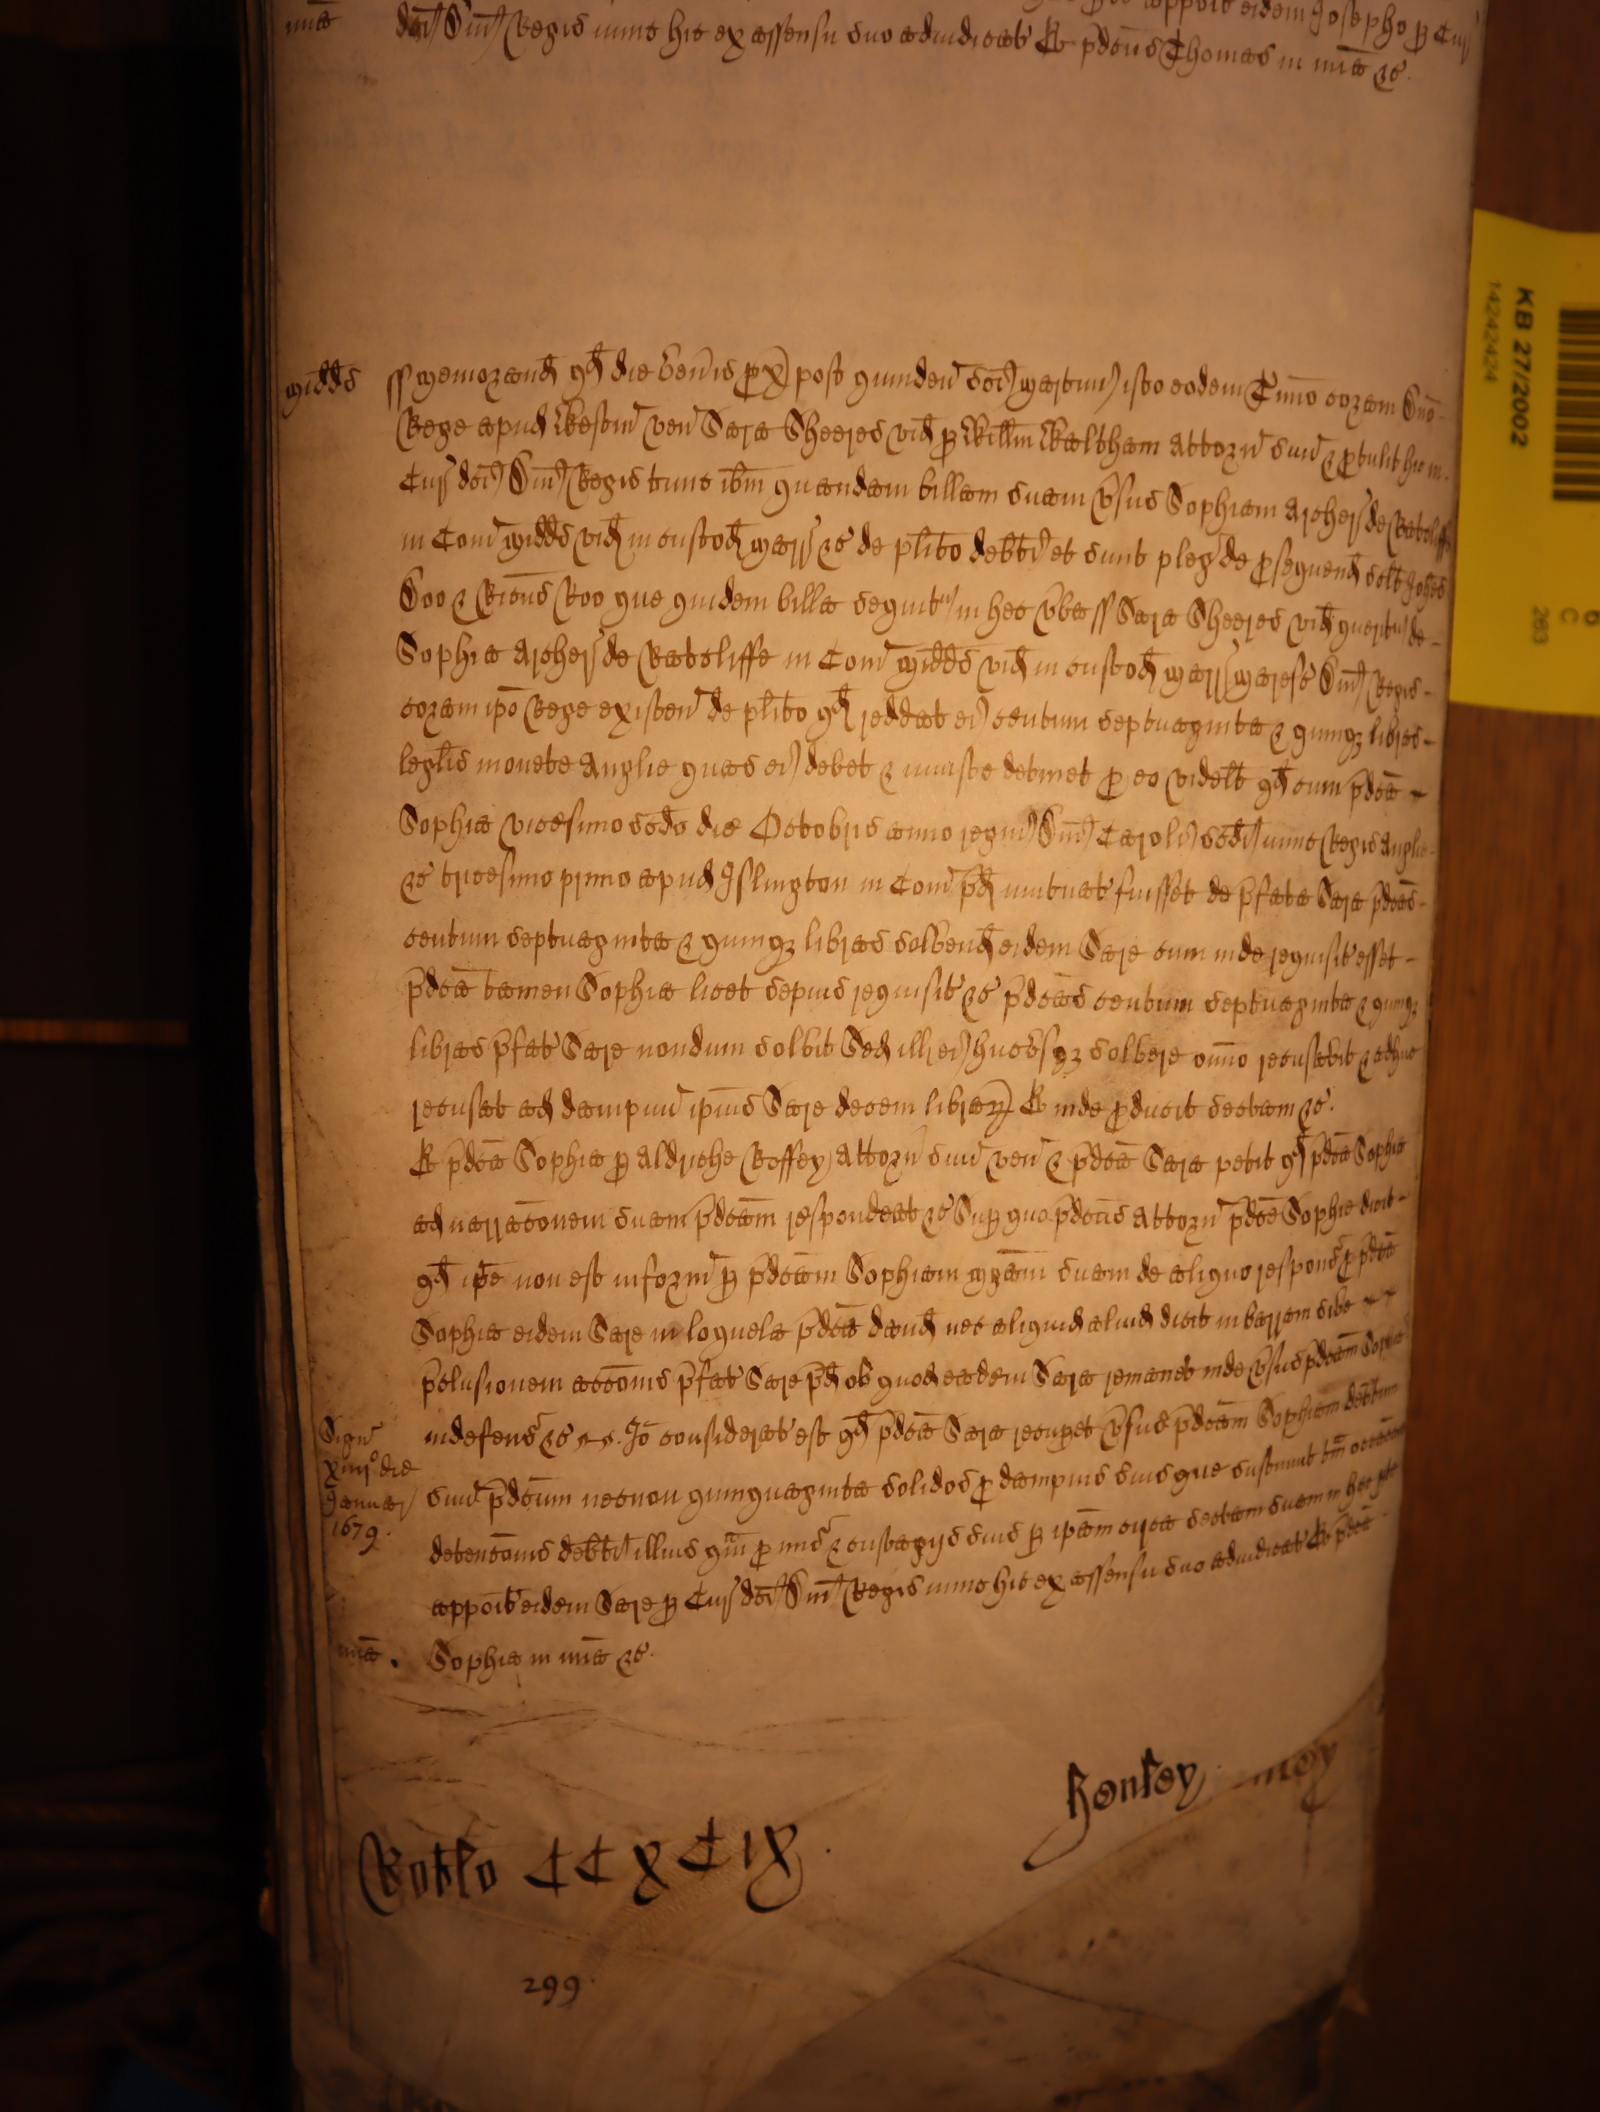 appoit eidem Josepho p Cur
mia dci Dni Regis nunc hic ex assensu suo adiudicat Et pdcus Thomas in mia &c.
Midds ss Memorand qd die Ven'is px post quinden sci Martini isto eodem T'mino coram Dno
Rege apud Westm ven Sara Sheeres vid p Willm Waltham Attorn suu & protulit hic in
Cur dci Dni Regis tunc ibm quandam billam suam v'sus Sophiam Archer de Ratcliffe
in Com Midds vid in custod Marr &c de plito debti et sunt pleg de prosequend scilt Johes
Doo & Ricus Roo que quidem billa sequit' in hec v'ba ss Sara Sheeres vid querit' de
Sophia Archer de Ratcliffe in Com Midds vid in custod Marr Maresc Dni Regis
coram ipo Rege existen de plito qd reddat ei centum septuaginta & quinq libras
leglis monete Anglie quas ei debet & iniuste detinet pro eo videlt qd cum pdca
Sophia vicesimo scdo die Octobris anno regni Dni Caroli scdi nunc Regis Anglie
&c tricesimo primo apud Islington in Com pd mutuat fuisset de pfata Sara pdcas
centum septuaginta & quinq libras solvend eidem Sare cum inde requisit esset
pdca tamen Sophia licet sepius requisit &c pdcas centum septuaginta & quinq
libras pfat Sare nondum solvit Sed ill ei hucusq solvere omno recusavit & adhuc
recusat ad dampnu ipius Sare decem librar Et inde producit sectam &c.
Et pdca Sophia p Aldriche Roffey Attorn suu ven & pdca Sara petit qd pdca Sophia
ad narraconem suam pdcam respondeat &c Sup quo pdcus Attorn pdce Sophie dicit
qd ipe non est inform p pdcam Sophiam Mgram suam de aliquo respons pro pdca
Sophia eidem Sare in loquela pdca dand nec aliquid aliud dicit in barram sive
pclusionem accois pfat Sare pd ob quod eadem Sara remanet inde v'sus pdcam Sophia
indefens &c Io considerat est qd pdca Sara recupet v'sus pdcam Sophiam debitum
Sign
xiiij° die
Januar
1679.
suu pdcum necnon quinquaginta solidos pro dampnis suis que sustinuit tm occacoe
detencois debti illius qm pro mis & custagijs suis p ipam circa sectam suam in hac pte
appoit eidem Sare p Cur dci Dni Regis nunc hic ex assensu suo adiudicat Et pdca
mia. Sophia in mia &c.
Henley
Rotlo CCXCIX.
299.
KB 27/2002
14242424
263